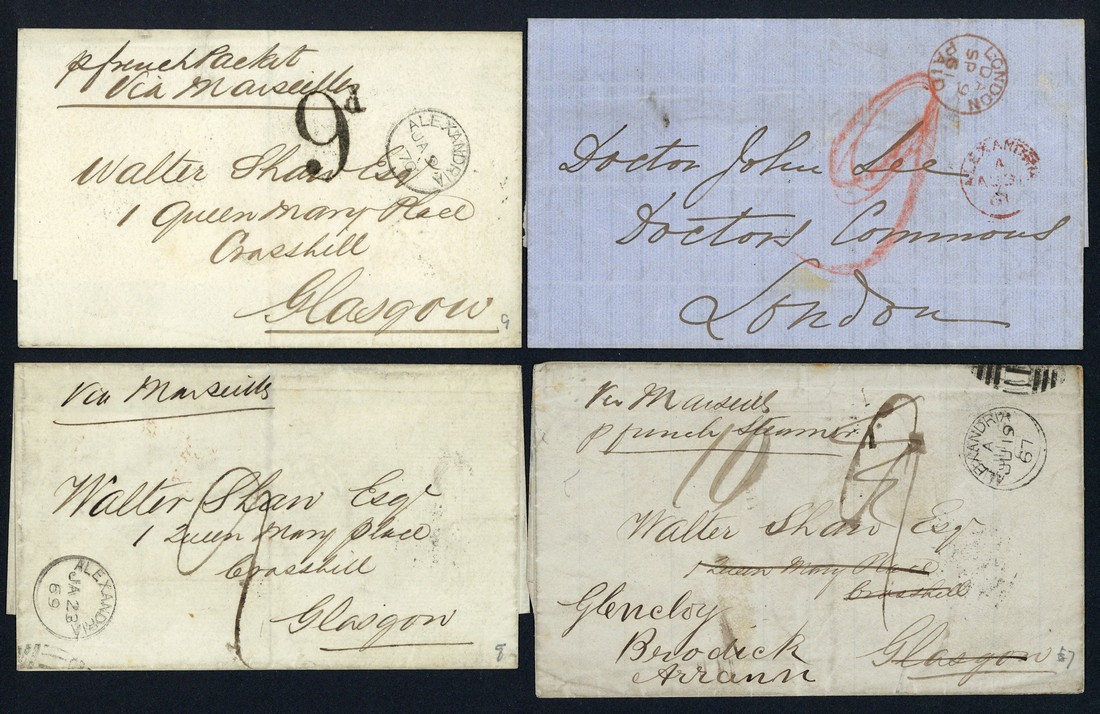 p french Packet
Via Marseilles
9d
ALEXANDRIA
JA 9
70
Walter Shaw Esqr
1 Queen Mary Place
Crosshill
Glasgow
9
LONDON
PAID
ALEXANDRIA
A
9
Doctor John Lee
Doctors Commons
London
Via Marseills
Walter Shaw Esqr
1 Queen Mary Place
Crosshill
Glasgow
ALEXANDRIA
JA 23
69
8
Via Marseills
p french Steamer
10
ALEXANDRIA
A
67
Walter Shaw Esqr
1 Queen Mary Place
Crosshill
Glencloy
Brodick
Arrann
Glasgow
57